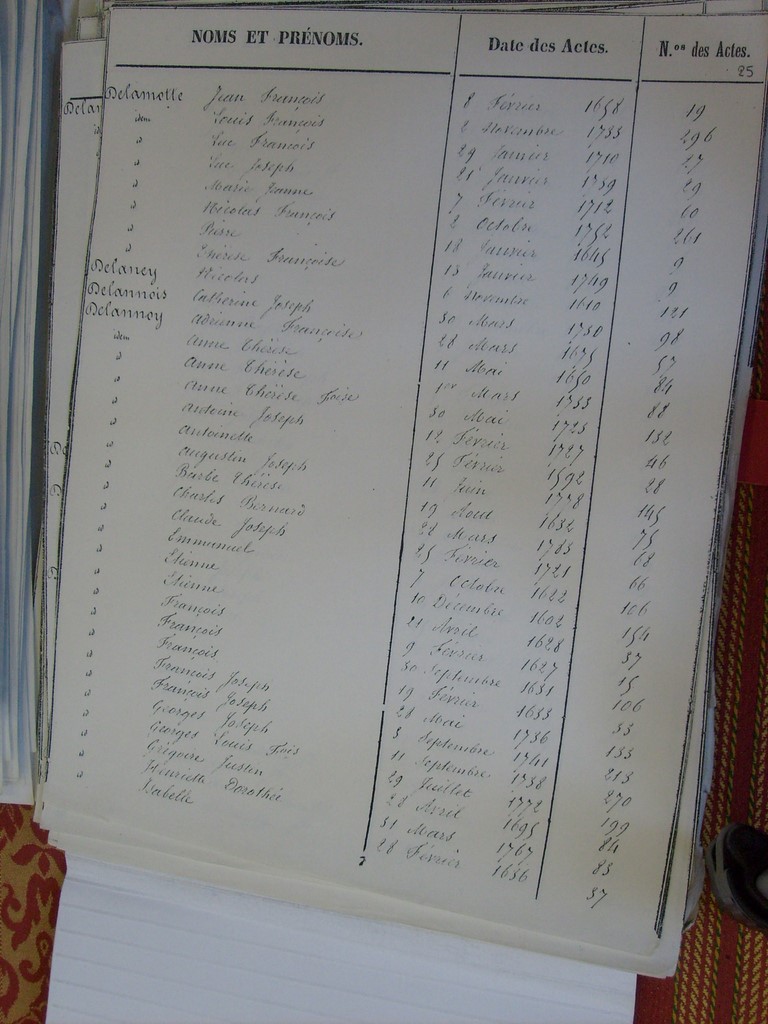 NOMS ET PRÉNOMS. Date des Actes. N.os des Actes.
25
Delamotte Jean François 8 Février 1658 19
idem Louis François 2 Novembre 1733 296
" Luc François 29 Janvier 1710 27
" Luc Joseph 21 Janvier 1739 29
" Marie Jeanne 7 Février 1712 60
" Nicolas François 2 Octobre 1752 261
" Pierre 18 Janvier 1645 9
" Thérèse Françoise 13 Janvier 1749 9
Delaney Nicolas 6 Novembre 1610 121
Delannois Catherine Joseph 30 Mars 1730 98
Delannoy Adrienne Françoise 28 Mars 1675 57
idem Anne Thérèse 11 Mai 1650 84
" Anne Thérèse 1er Mars 1733 88
" Anne Thérèse Foise 30 Mai 1723 132
" Antoine Joseph 12 Février 1727 46
" Antoinette 25 Février 1592 28
" Augustin Joseph 11 Juin 1778 145
" Barbe Thérèse 19 Aout 1632 75
" Charles Bernard 22 Mars 1783 68
" Claude Joseph 25 Février 1721 66
" Emmanuel 7 Octobre 1622 106
" Etienne 10 Décembre 1602 154
" Etienne 21 Avril 1628 37
" François 9 Février 1627 15
" François 30 Septembre 1631 106
" François 19 Février 1633 33
" François Joseph 28 Mai 1736 133
" François Joseph 3 Septembre 1741 213
" Georges Joseph 11 Septembre 1738 270
" Georges Louis Fois 29 Juillet 1772 199
" Grégoire Justin 22 Avril 1695 84
" Henriette Dorothée 31 Mars 1767 83
" Isabelle 28 Février 1636 37